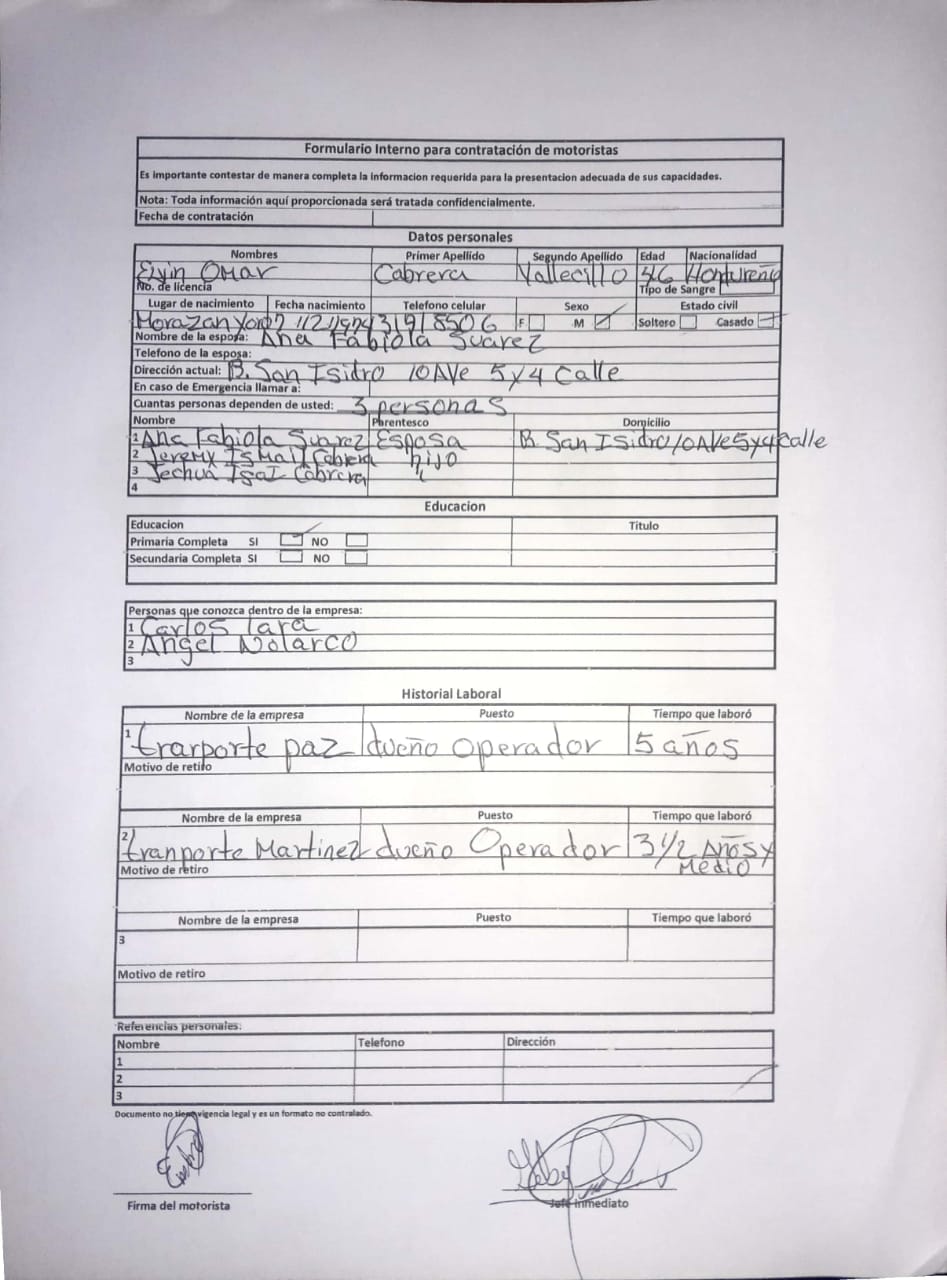 Formulario Interno para contratación de motoristas
Es importante contestar de manera completa la informacion requerida para la presentacion adecuada de sus capacidades.
Nota: Toda información aquí proporcionada será tratada confidencialmente.
Fecha de contratación
Datos personales
Nombres Primer Apellido Segundo Apellido Edad Nacionalidad
Elvin Omar Cabrera Vallecillo 46 Hontureño
No. de licencia Tipo de Sangre
Lugar de nacimiento Fecha nacimiento Telefono celular Sexo Estado civil
Morazan Yoro F M Soltero Casado
Nombre de la esposa: Ana Fabiola Suarez
Telefono de la esposa:
Dirección actual: B. San Isidro 10 AVe 5 y 4 Calle
En caso de Emergencia llamar a:
Cuantas personas dependen de usted: 3 personas
Nombre Parentesco Domicilio
1 Ana Fabiola Suarez Esposa B. San Isidro 10 AVe 5 y 4 calle
2 Jeremy Ismail Cabrera hijo
3 Jechua Isai Cabrera
4
Educacion
Educacion Titulo
Primaria Completa SI NO
Secundaria Completa SI NO
Personas que conozca dentro de la empresa:
1 Carlos Tara
2 Angel Nolarco
3
Historial Laboral
Nombre de la empresa Puesto Tiempo que laboró
1 trarporte paz dueño operador 5 años
Motivo de retiro
Nombre de la empresa Puesto Tiempo que laboró
2 tranporte Martinez dueño Operador 3 1/2 Años y
Medio
Motivo de retiro
Nombre de la empresa Puesto Tiempo que laboró
3
Motivo de retiro
Referencias personales:
Nombre Telefono Dirección
1
2
3
Documento no tiene vigencia legal y es un formato no contralado.
Firma del motorista Jefe Inmediato